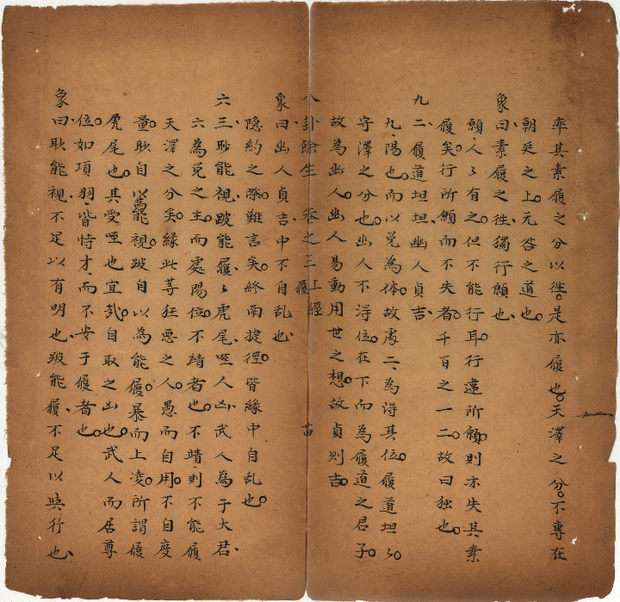 率其素履之分以徃。是亦履也。天澤之分。不專在
朝廷之上。无咎之道也。
象曰。素履之徃。獨行願也。
願。人人有之。但不能行耳。行違所願。則亦失其素
履矣。行所願而不失者。千百之一二。故曰獨也。
九二。履道坦坦。幽人貞吉。
九。陽也。而以兌為体。故處二。為得其位。履道坦坦。
守澤之分也。幽人不得位。在下而為履道之君子。
故為幽人。幽人易動用世之想。故貞則吉。
八卦餘生 卷之三 上經 履
象曰。幽人貞吉。中不自亂也。
隐約之際難言矣。終南捷徑。皆緣中自亂也。
六三。眇能視。跛能履。履虎尾。咥人凶。武人為于大君。
六為兌之主。而處陽位。不靖者也。不靖。則不能履
天澤之分矣。緣此等狂惡之人。愚而自用。不自度
量。眇自以為能視。跛自以為能履。暴而上凌。所謂履
虎尾也。其受咥也宜哉。自取之凶也。武人而居尊
位。如項羽。皆恃才而不安于履者也。
象曰。眇能視。不足以有明也。跛能履。不足以與行也。